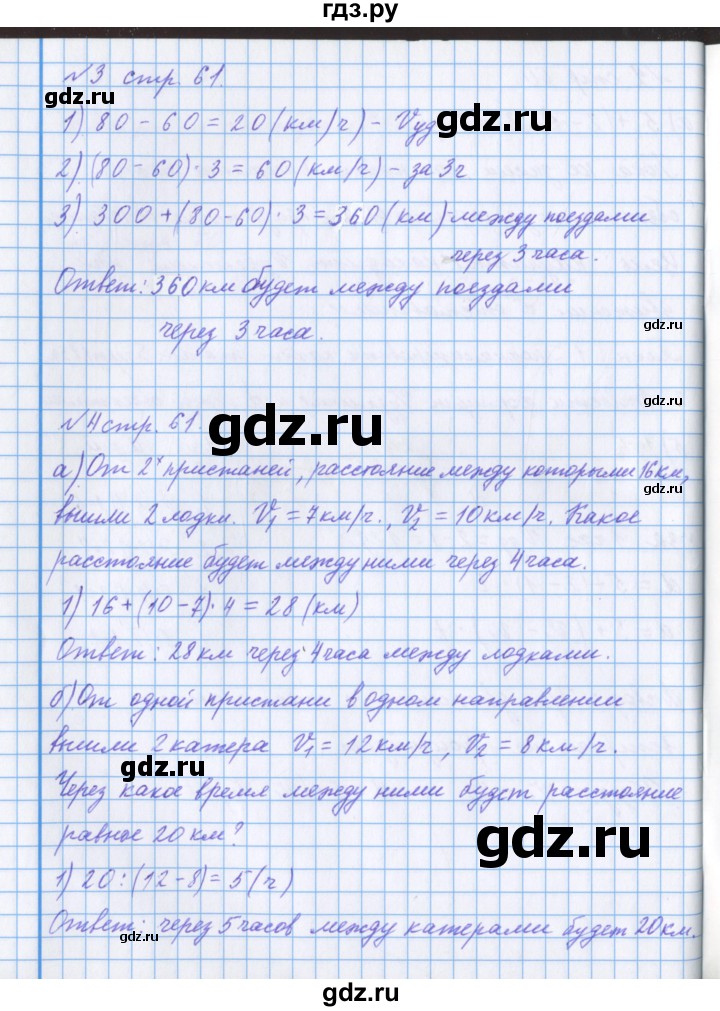 гдз.ру
№3 стр. 61.
1) 80 - 60 = 20 (км/ч) - Vуд
2) (80 - 60) · 3 = 60 (км/ч) - за 3ч
3) 300 + (80-60) · 3 = 360 (км) - между поездами
через 3 часа.
Ответ: 360 км будет между поездами
через 3 часа.
№4 стр. 61.
а) От 2х пристаней, расстояние между которыми 16 км,
вышли 2 лодки. V1 = 7 км/ч., V2 = 10 км/ч. Какое
расстояние будет между ними через 4 часа.
1) 16 + (10 - 7) · 4 = 28 (км)
Ответ: 28 км через 4 часа между лодками.
б) От одной пристани в одном направлении
вышли 2 катера V1 = 12 км/ч, V2 = 8 км/ч.
Через какое время между ними будет расстояние
равное 20 км?
1) 20 : (12 - 8) = 5 (ч)
Ответ: через 5 часов между катерами будет 20 км.
gdz.ru
gdz.ru
gdz.ru
gdz.ru
gdz.ru
gdz.ru
gdz.ru
gdz.ru
gdz.ru
gdz.ru